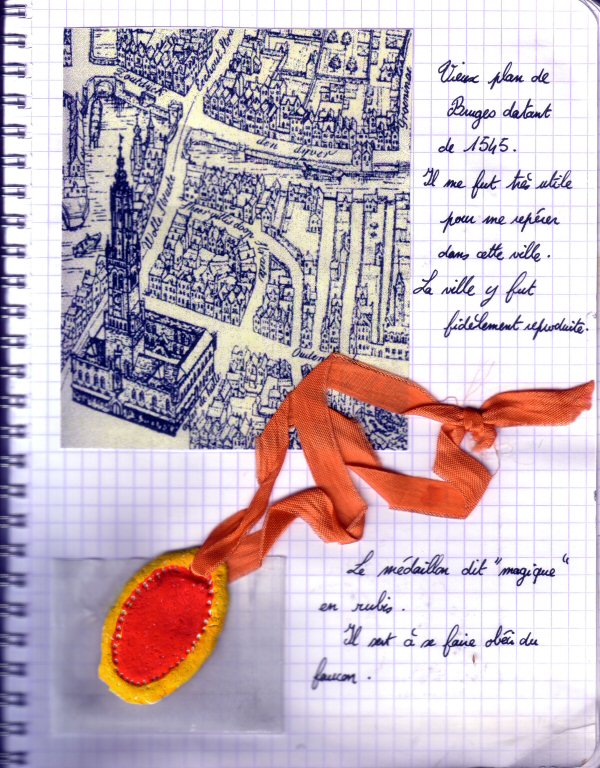 Vieux plan de
Bruges datant
de 1545.
Il me fut très utile
pour me repérer
dans cette ville.
La ville y fut
fidèlement reproduite.
Le médaillon dit "magique"
en rubis.
Il sert à se faire obéir du
faucon.